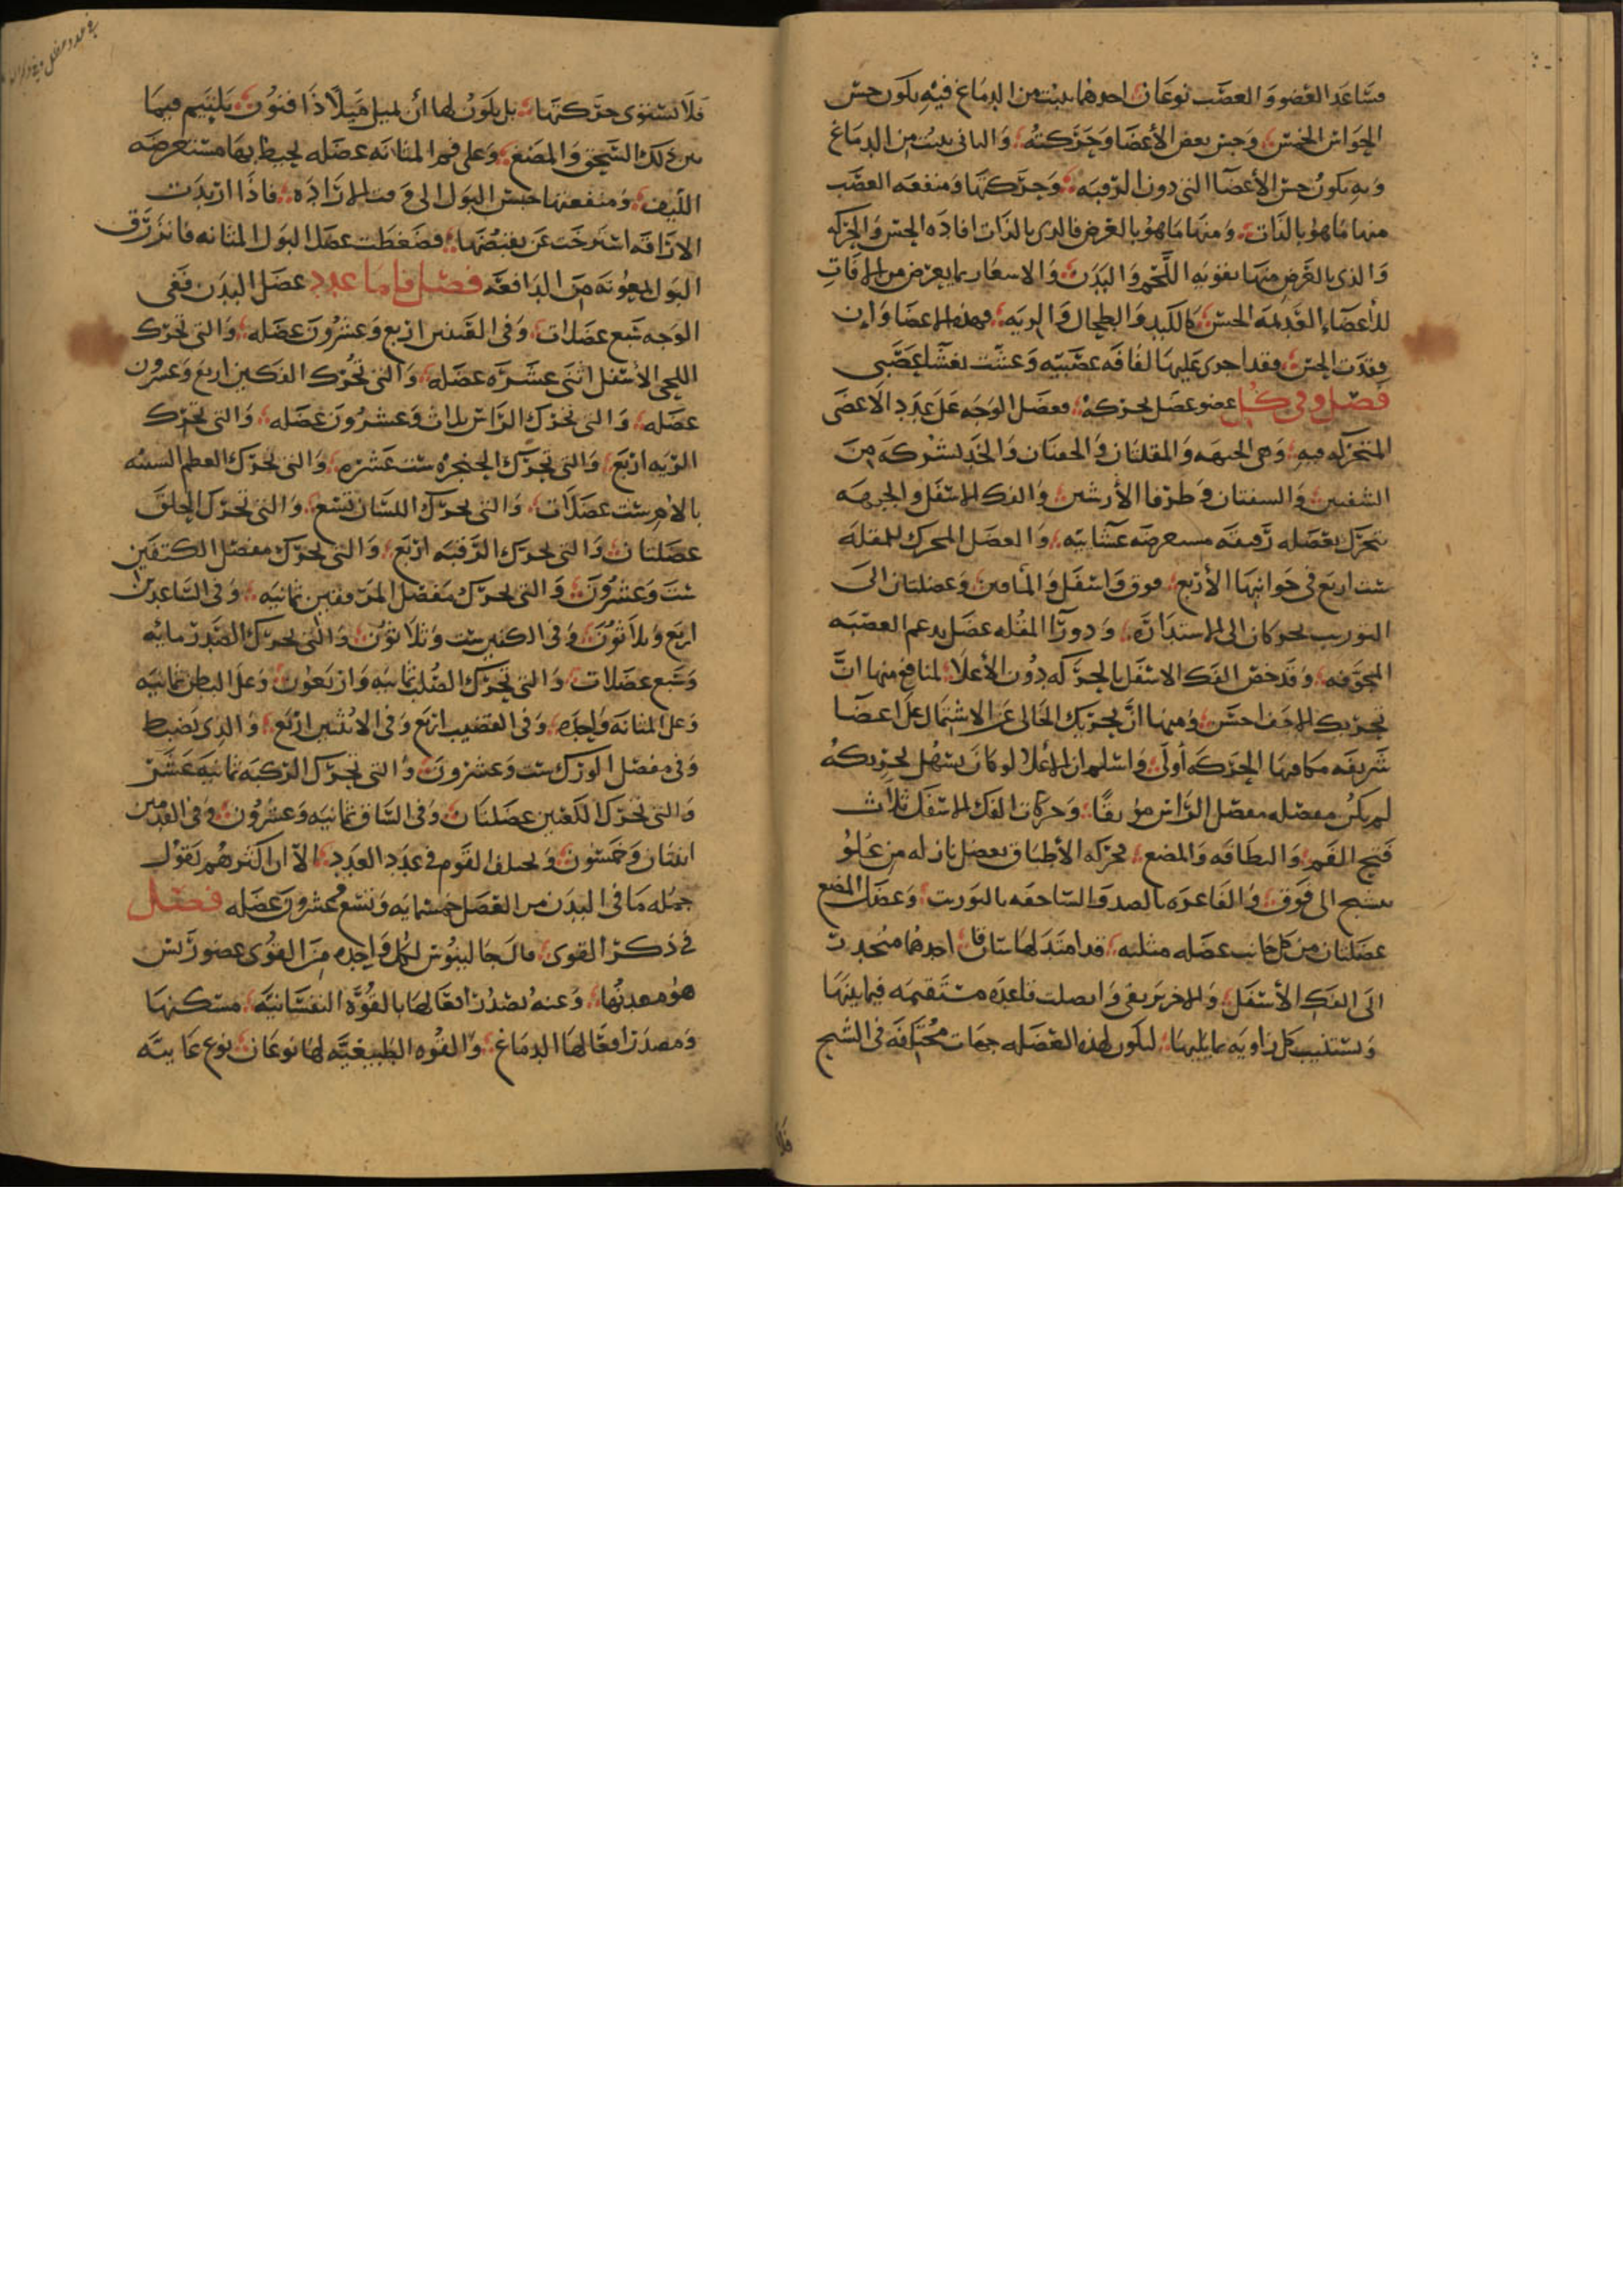 فساعد العضو والعصب نوعان احدهما ينبت من الدماغ فيه يكون حس
الحواس الخمس وحس بعض الأعضا وحركته والثاني ينبت من الدماغ
وبه يكون حس الأعضاا التي دون الرقبه وحركتها ومنفعه العصب
منها ما هو بالذات ومنها ما هو بالعرض فالذي بالذات افاده الحس والحركه
والذي بالعرض منها تقويه اللحم والبدن والاسعار بما يعرض من الافات
للأعضاء العديمه الحس كالكبد والطحال والريه فهذه الاعضا وان
فقدت الحس فقد اجرى عليها لفافه عصبيه وغشت بغشا عصبي
فصل وفي كل عضو عضل يحركه فعضل الوجه على عدد الاعضى
المتحركه فيه وهي الجبهه والمقلتان والجفنان والخد بشركه من
الشفتين والشفتان وطرفا الأرنبتين والفك الاسفل والجبهه
تتحرك بعضله رقيقه مستعرضه غشائيه والعضل المحرك للمقله
ست اربع في جوانبها الأربع فوق واسفل والمأقين وعضلتان الى
التوريب يحركان الى الاستداره ودورا المقله عضل يدعم العصبه
المجوفه وقد خص الفك الاسفل بالحركه دون الأعلا لمنافع منها ان
تحريك الاخف احسن ومنها ان تحريك الخالي عن الاشتمال على اعضا
شريفه مكافيها الحركه أولى واسلم ان الاعلا لو كان يسهل تحريكه
لم يكن مفصله مفصل الراس موثقا وحركات الفك الاسفل ثلاث
فتح الفم والبطاقه والمضع فحركه الأطباق بعضل نازله من علو
تشنج الى فوق والفاغره بالصد والساحقه بالتوريب وعضل المضع
عضلتان من كل جانب عضله مثلثه قد امتد لها ساقان احدهما منحدرت
الى الفك الأسفل والاخر يرتقي واتصلت قاعده مستقيمه فيما بينها
وتشتبث كل زاويه بما يليها ليكون لهذه العضله جهات مختلفه في الشنج
فلا
فلا تستوى حركتها بل يكون لها أن تميل ميلا ذا فنون يلتيم فيما
بين ذلك السحق والمضغ وعلى فم المثانه عضله تحيط بها مستعرضه
الليف ومنفعتها حبس البول الى وقت الاراده فاذا اريدت
الاراقه استرخت عن تقبضها فضغطت عضل البول المثانه فانزرق
البول بمعونه من الدافعه فصل فاما عدد عضل البدن ففي
الوجه تسع عضلات وفي العينين اربع وعشرون عضله والتي تحرك
اللحي الاسفل اثنى عشره عضله والتي تحرك الفكين اربع وعشرون
عضله والتي تحرك الراس ثلاث وعشرون عضله والتي تحرك
الريه اربع والتي تحرك الحنجره ست عشره والتي تحرك العظم الشبيه
بالام ست عضلات والتي تحرك اللسان تسع والتي تحرك الحلق
عضلتان والتي تحرك الرقبه اربع والتي تحرك مفصل الكتفين
ست وعشرون والتي تحرك مفصل المرفقين ثمانيه وفي الساعدين
اربع وثلاثون وفي الكفين ست وثلاثون والتي تحرك الصدر مايه
وسبع عضلات والتي تحرك الصلب ثمانيه واربعون وعلى البطن ثمانيه
وعلى المثانه واحده وفي القضيب اربع وفي الانثيين اربع والذي يضبط
وفي مفصل الورك ست وعشرون والتي تحرك الركبه ثمانيه عشر
والتي تحرك الكعبين عضلتان وفي الساق ثمانيه وعشرون وفي القدمين
اثنتان وخمسون ويختلف القوم في عدد العدد الا ان اكثرهم يقول
جمله ما في البدن من العضل خمسمايه وتسع عشرون عضله فصل
في ذكر القوى قال جالينوس لكل واحده من القوى عضو رئس
هو معدنها وعنه تصدر افعالها بالقوه النفسانيه مسكنها
ومصدر افعالها الدماغ والقوه الطبيعيه لها نوعان نوع غايته